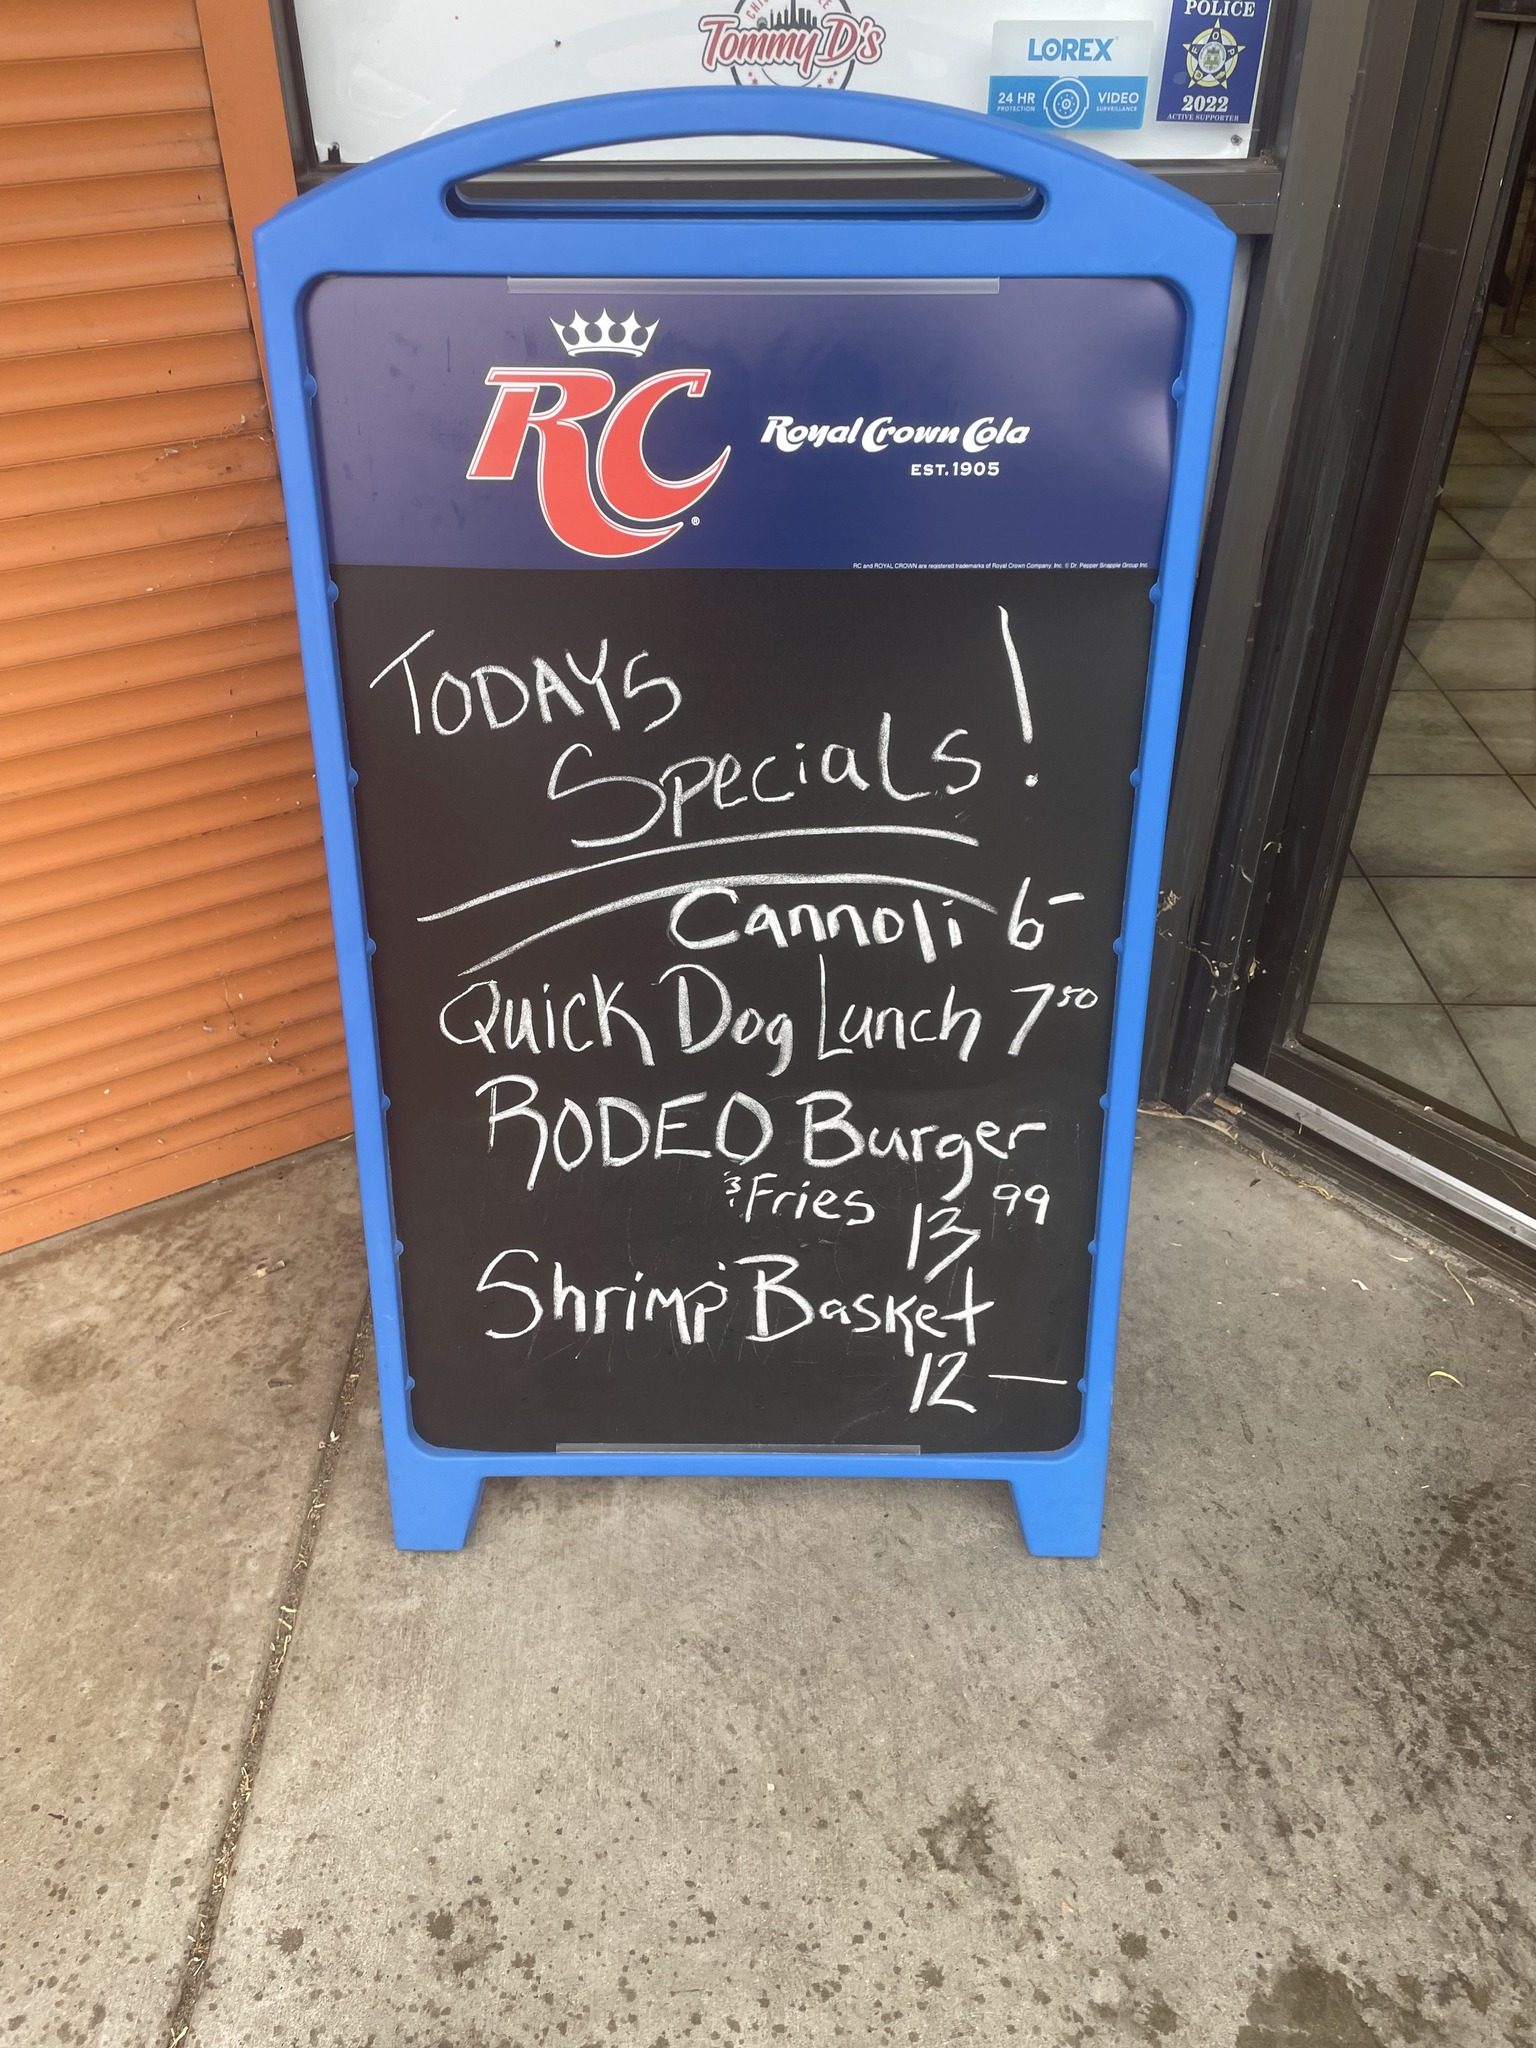 Tommy D's
LOREX
24 HR PROTECTION VIDEO SURVEILLANCE
POLICE
FOP
2022
ACTIVE SUPPORTER
RC®
Royal Crown Cola
EST. 1905
RC and ROYAL CROWN are registered trademarks of Royal Crown Company, Inc. © Dr. Pepper Snapple Group Inc.
TODAYS
Specials!
Cannoli 6-
Quick Dog Lunch 7 50
RODEO Burger
& Fries 13 99
Shrimp Basket
12 —